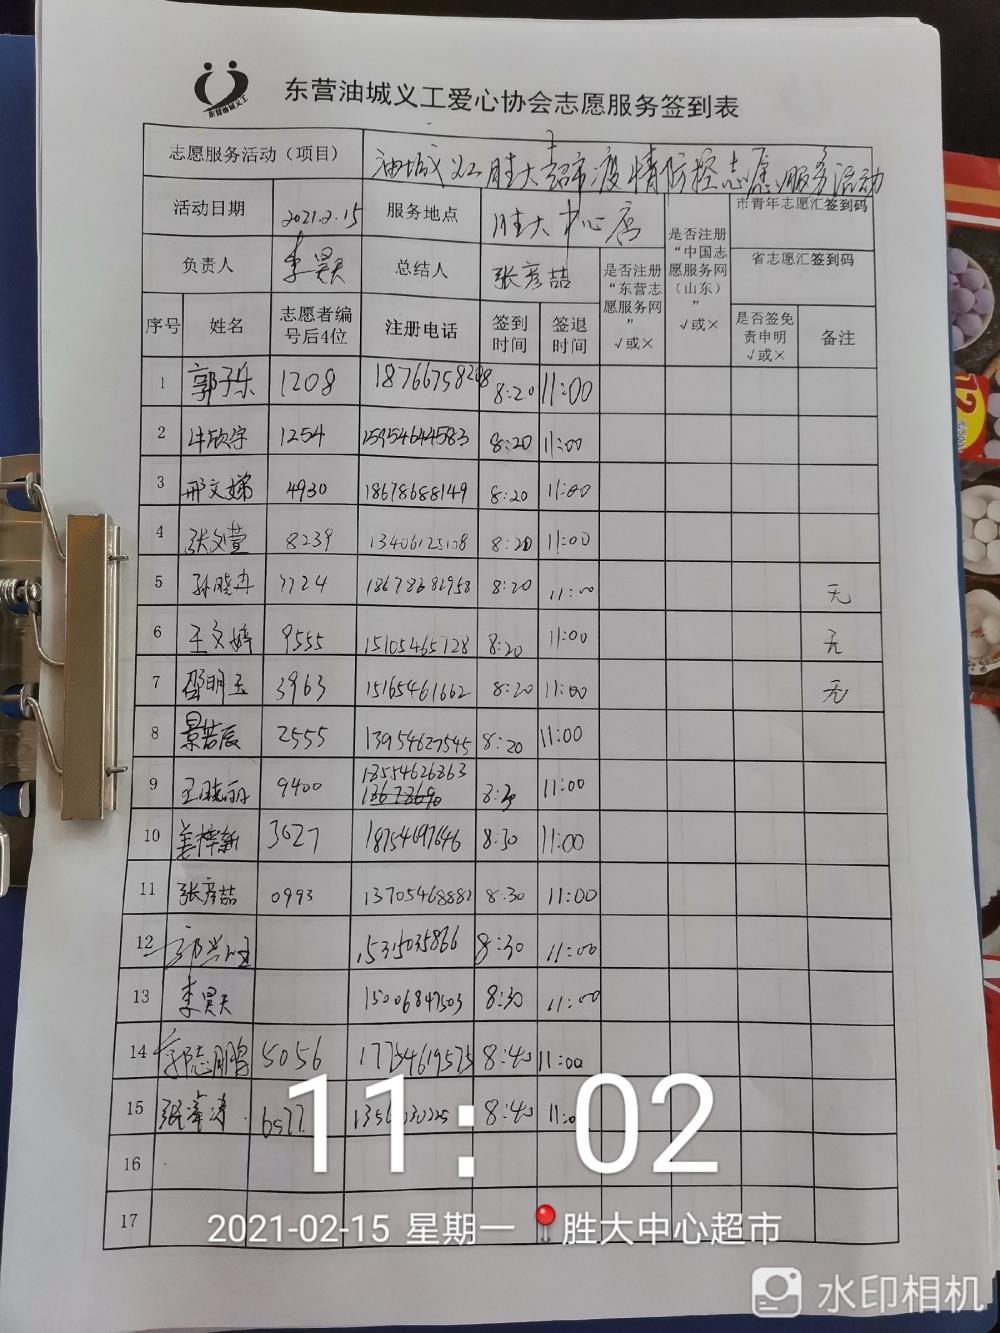 东营油城义工
东营油城义工爱心协会志愿服务签到表
志愿服务活动（项目） 油城义工胜大超市疫情防控志愿服务活动
活动日期 2021.2.15 服务地点 胜大中心店 市青年志愿汇签到码
负责人 李昊天 总结人 张彦喆 省志愿汇签到码
是否注册“东营志愿服务网” √或×
是否注册“中国志愿服务网（山东）” √或×
序号 姓名 志愿者编号后4位 注册电话 签到时间 签退时间 是否签免责申明 √或× 备注
1 郭子乐 1208 18766758208 8:20 11:00
2 牛欣宇 1254 15954644583 8:20 11:00
3 邢文娣 4930 18678688149 8:20 11:00
4 张文萱 8239 8:20 11:00
5 孙晓冉 7724 18678682958 8:20 11:00 无
6 王文婷 9555 15105465728 8:20 11:00 无
7 邵明玉 3963 15165461662 8:20 11:00 无
8 景若辰 2555 13954627545 8:20 11:00
9 王晓丽 9400 18554626863 8:30 11:00
10 姜梓新 3627 18754697646 8:30 11:00
11 张彦喆 0993 13705468882 8:30 11:00
12 8:30 11:00
13 李昊天 15006847503 8:30 11:00
14 郭志鹏 5056 17754619575 8:40 11:00
15 6577 8:40
16
17
11:02
2021-02-15 星期一 胜大中心超市
水印相机
12